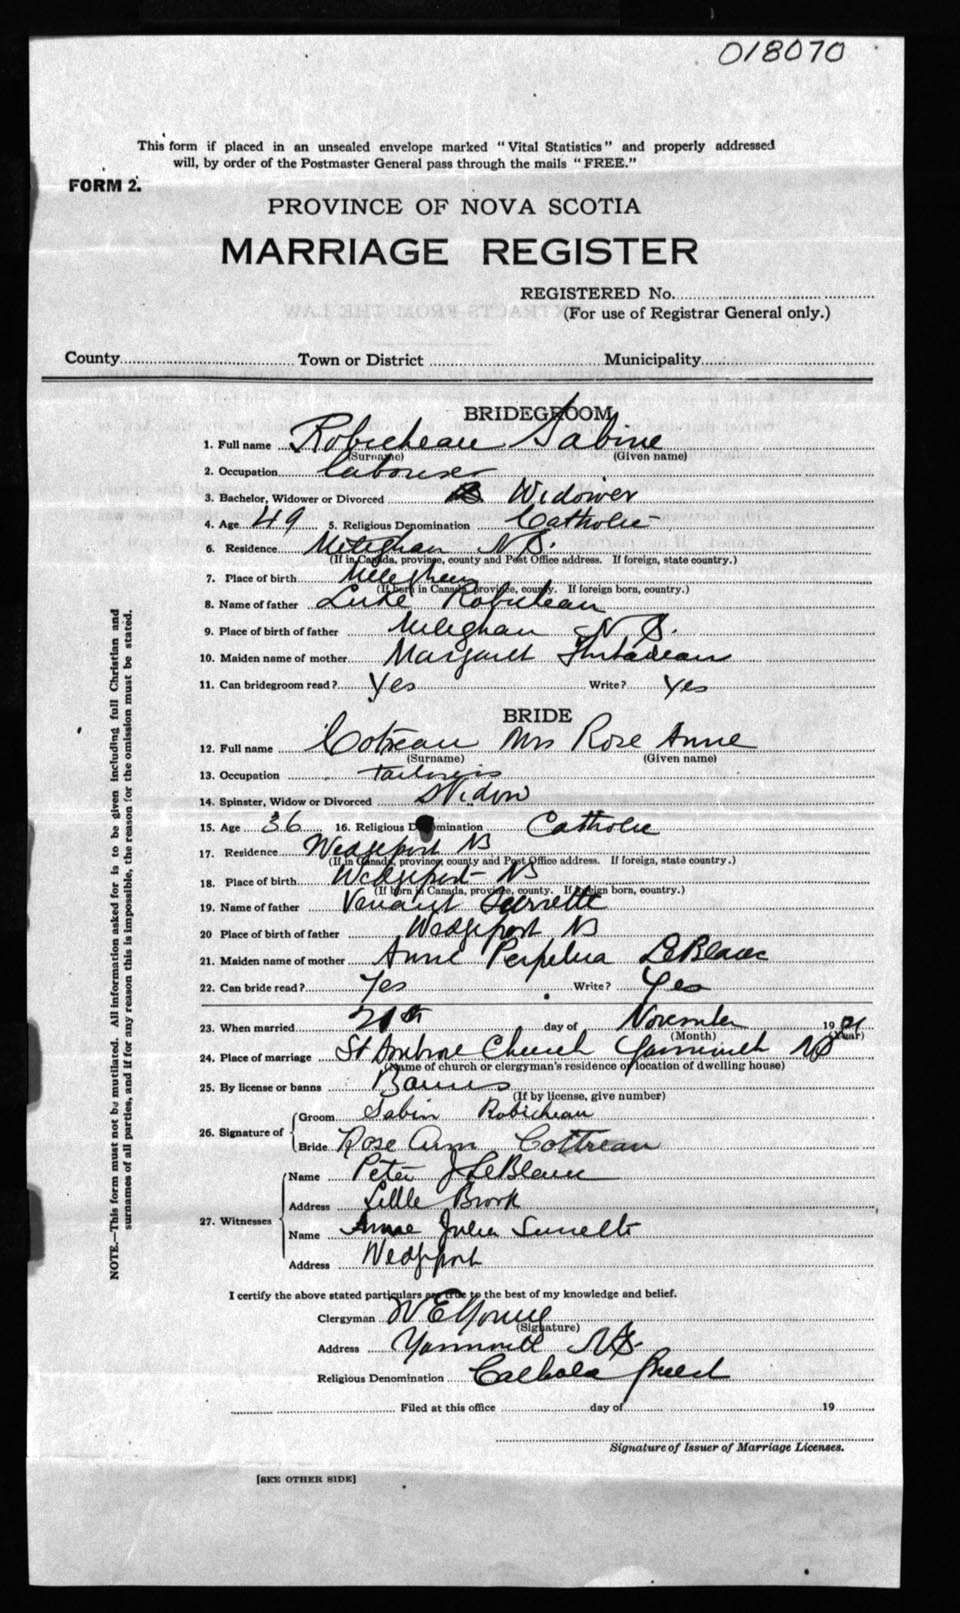 018070
This form if placed in an unsealed envelope marked "Vital Statistics" and properly addressed
will, by order of the Postmaster General pass through the mails "FREE."
FORM 2.
PROVINCE OF NOVA SCOTIA
MARRIAGE REGISTER
REGISTERED No.
(For use of Registrar General only.)
County Town or District Municipality
BRIDEGROOM
1. Full name Robicheau Sabine
(Surname) (Given name)
2. Occupation labourer
3. Bachelor, Widower or Divorced Widower
4. Age 49 5. Religious Denomination Catholic
6. Residence Meteghan N S.
(If in Canada, province, county and Post Office address. If foreign, state country.)
7. Place of birth Meteghan
(If born in Canada, province, county. If foreign born, country.)
8. Name of father Luke Robicheau
9. Place of birth of father Meteghan N S.
10. Maiden name of mother Margaret
11. Can bridegroom read? Yes Write? Yes
BRIDE
12. Full name Cotreau Mrs Rose Anne
(Surname) (Given name)
13. Occupation tailoress
14. Spinster, Widow or Divorced Widow
15. Age 36 16. Religious Denomination Catholic
17. Residence Wedgeport NS
(If in Canada, province, county and Post Office address. If foreign, state country.)
18. Place of birth Wedgeport NS
(If born in Canada, province, county. If foreign born, country.)
19. Name of father Venant Surrette
20 Place of birth of father Wedgeport NS
21. Maiden name of mother Anne Perpetua LeBlanc
22. Can bride read? Yes Write? Yes
23. When married 21th day of November 1921
(Month) (Year)
24. Place of marriage St Ambrose Church Yarmouth NS
(Name of church or clergyman's residence or location of dwelling house)
25. By license or banns Banns
(If by license, give number)
26. Signature of Groom Sabin Robicheau
Bride Rose Ann Cottreau
27. Witnesses Name Peter J LeBlanc
Address Little Brook
Name Anne Julia Surrette
Address Wedgeport
I certify the above stated particulars are true to the best of my knowledge and belief.
Clergyman W E Young
(Signature)
Address Yarmouth NS.
Religious Denomination Catholic Priest
Filed at this office day of 19
Signature of Issuer of Marriage Licenses.
[SEE OTHER SIDE]
NOTE.—This form must not be mutilated. All information asked for is to be given including full Christian and
surnames of all parties, and if for any reason this is impossible, the reason for the omission must be stated.